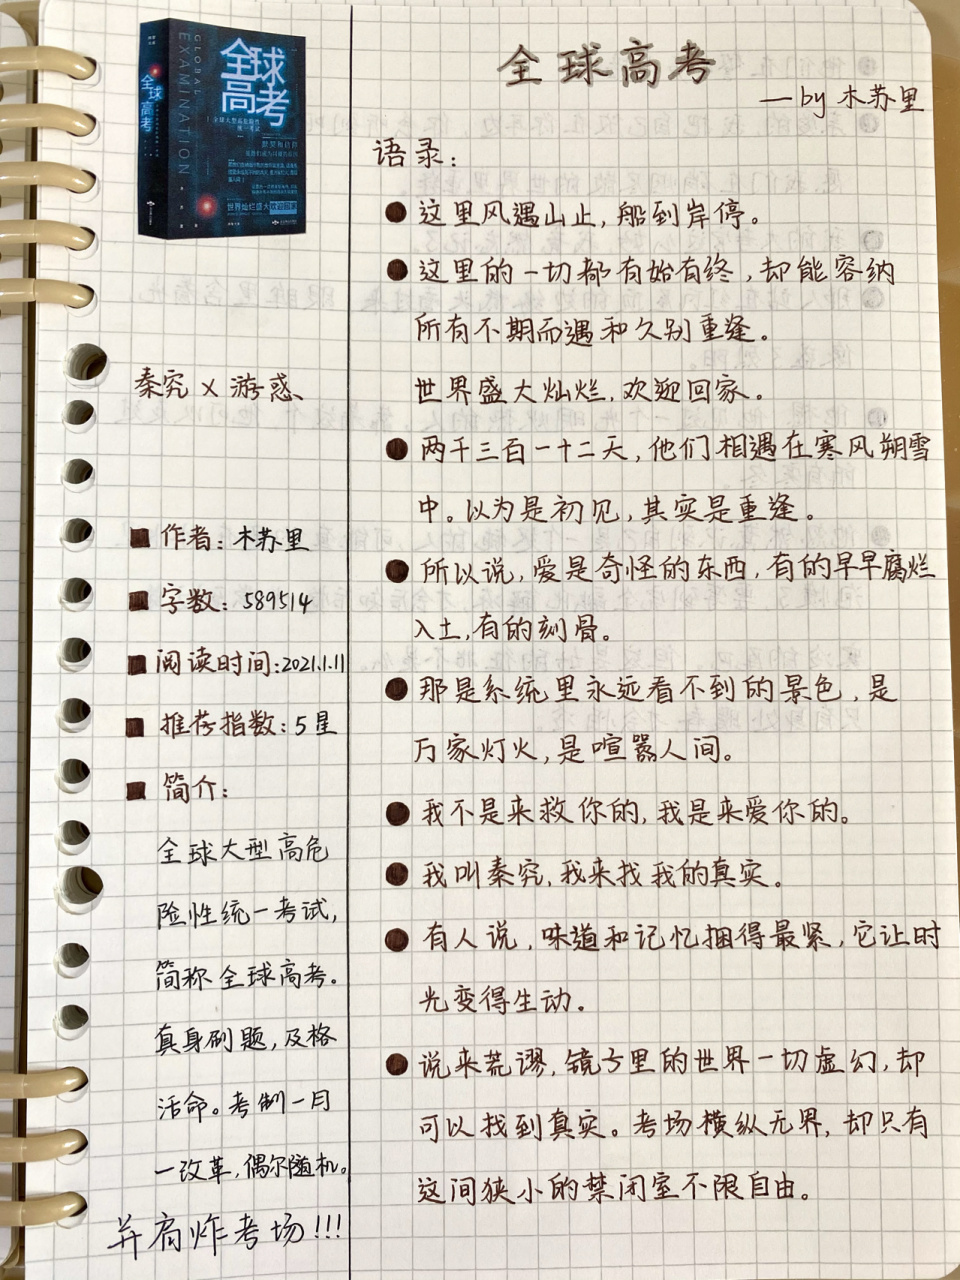 全球高考
GLOBAL
EXAMINATION
全球
高考
世界灿烂盛大 欢迎回家
秦究 × 游惑、
■ 作者：木苏里
■ 字数：589514
■ 阅读时间：2021.1.11
■ 推荐指数：5星
■ 简介：
全球大型高危
险性统一考试，
简称全球高考。
真身刷题，及格
活命。考制一月
一改革，偶尔随机。
并肩炸考场!!!
全球高考
—by 木苏里
语录：
● 这里风遇山止，船到岸停。
● 这里的一切都有始有终，却能容纳
所有不期而遇和久别重逢。
世界盛大灿烂，欢迎回家。
● 两千三百一十二天，他们相遇在寒风朔雪
中。以为是初见，其实是重逢。
● 所以说，爱是奇怪的东西，有的早早腐烂
入土，有的刻骨。
● 那是系统里永远看不到的景色，是
万家灯火，是喧嚣人间。
● 我不是来救你的，我是来爱你的。
● 我叫秦究，我来找我的真实。
● 有人说，味道和记忆捆得最紧，它让时
光变得生动。
● 说来荒谬，镜子里的世界一切虚幻，却
可以找到真实。考场横纵无界，却只有
这间狭小的禁闭室不限自由。